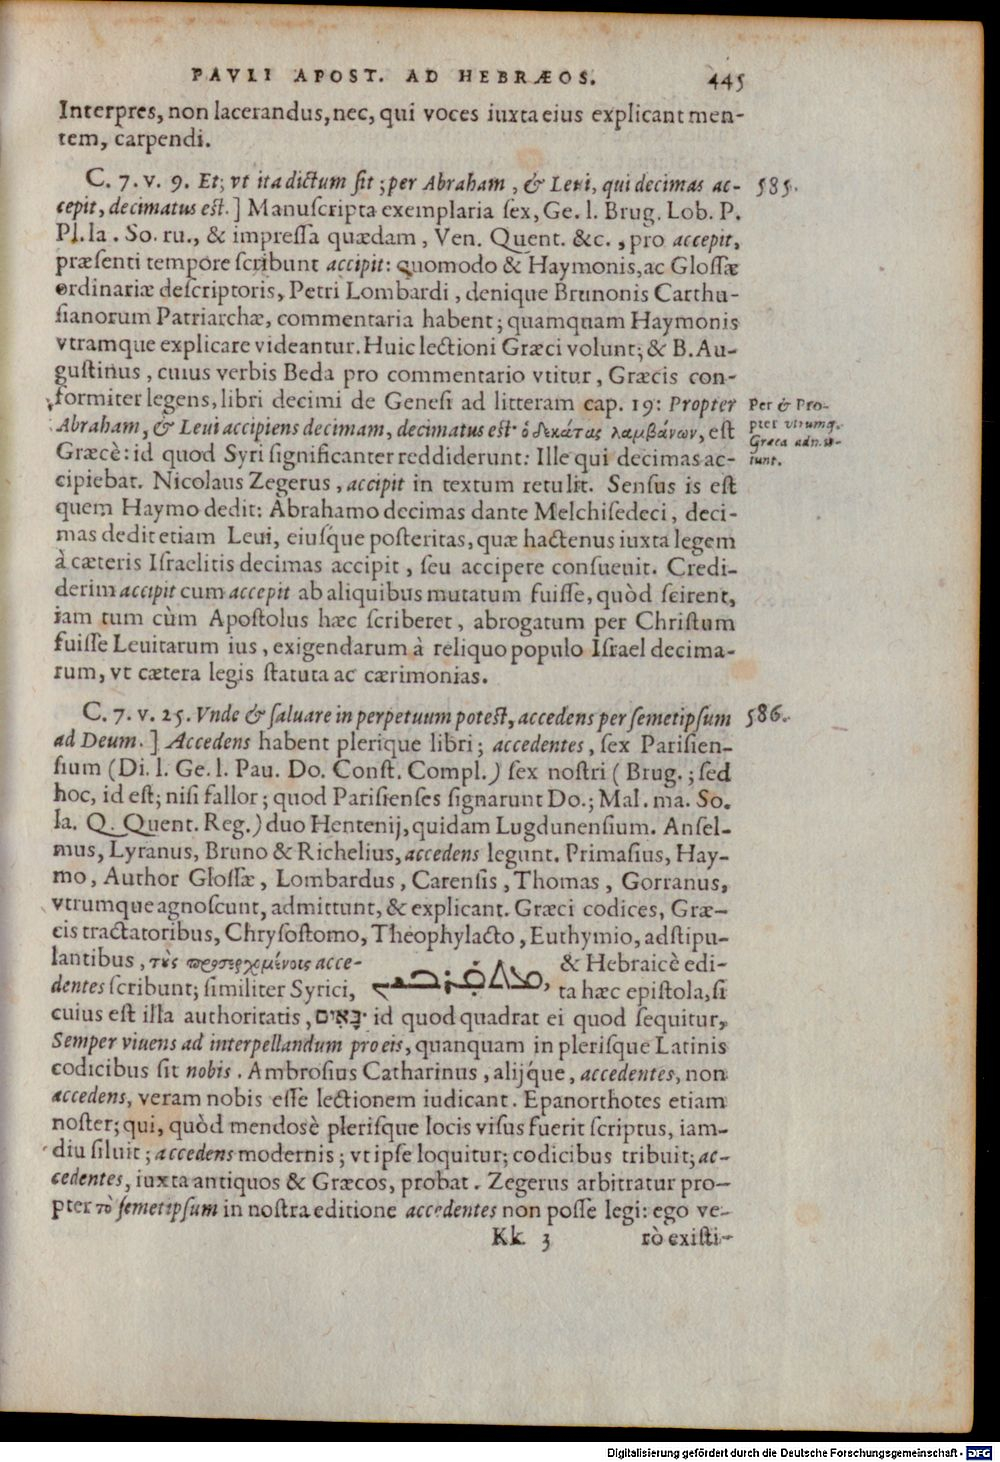 PAVLI APOST. AD HEBRÆOS. 445
Interpres, non lacerandus, nec, qui voces iuxta eius explicant men-
tem, carpendi.
C. 7. v. 9. Et; vt ita dictum sit; per Abraham, & Leui, qui decimas ac- 585.
cepit, decimatus est.] Manuscripta exemplaria sex, Ge. l. Brug. Lob. P.
Pl. la. So. ru., & impressa quædam, Ven. Quent. &c., pro accepit,
præsenti tempore scribunt accipit: quomodo & Haymonis, ac Glossæ
ordinariæ descriptoris, Petri Lombardi, denique Brunonis Carthu-
sianorum Patriarchæ, commentaria habent; quamquam Haymonis
vtramque explicare videantur. Huic lectioni Græci volunt; & B. Au-
gustinus, cuius verbis Beda pro commentario vtitur, Græcis con-
formiter legens, libri decimi de Genesi ad litteram cap. 19: Propter
Abraham, & Leui accipiens decimam, decimatus est· ὁ δεκάτας λαμβάνων, est
Græcè: id quod Syri significanter reddiderunt: Ille qui decimas ac-
cipiebat. Nicolaus Zegerus, accipit in textum retulit. Sensus is est
quem Haymo dedit: Abrahamo decimas dante Melchisedeci, deci-
mas dedit etiam Leui, eiusque posteritas, quæ hactenus iuxta legem
à cæteris Israelitis decimas accipit, seu accipere consueuit. Credi-
derim accipit cum accepit ab aliquibus mutatum fuisse, quòd scirent,
iam tum cùm Apostolus hæc scriberet, abrogatum per Christum
fuisse Leuitarum ius, exigendarum à reliquo populo Israel decima-
rum, vt cætera legis statuta ac cærimonias.
Per & Pro-
pter vtrumq.
Græca
C. 7. v. 25. Vnde & saluare in perpetuum potest, accedens per semetipsum 586.
ad Deum.] Accedens habent plerique libri; accedentes, sex Parisien-
sium (Di. l. Ge. l. Pau. Do. Const. Compl.) sex nostri (Brug.; sed
hoc, id est; nisi fallor; quod Parisienses signarunt Do.; Mal. ma. So.
la. Q. Quent. Reg.) duo Hentenij, quidam Lugdunensium. Ansel-
mus, Lyranus, Bruno & Richelius, accedens legunt. Primasius, Hay-
mo, Author Glossæ, Lombardus, Carensis, Thomas, Gorranus,
vtrumque agnoscunt, admittunt, & explicant. Græci codices, Græ-
cis tractatoribus, Chrysostomo, Theophylacto, Euthymio, adstipu-
lantibus, τοὺς προσερχομένους acce- & Hebraicè edi-
dentes scribunt; similiter Syrici, ta hæc epistola, si
cuius est illa authoritatis, בָּאִים id quod quadrat ei quod sequitur,
Semper viuens ad interpellandum pro eis, quanquam in plerisque Latinis
codicibus sit nobis. Ambrosius Catharinus, alijque, accedentes, non
accedens, veram nobis esse lectionem iudicant. Epanorthotes etiam
noster; qui, quòd mendosè plerisque locis visus fuerit scriptus, iam-
diu siluit; accedens modernis; vt ipse loquitur; codicibus tribuit; ac-
cedentes, iuxta antiquos & Græcos, probat. Zegerus arbitratur pro-
pter τὸ semetipsum in nostra editione accedentes non posse legi: ego ve-
Kk 3 rò existi-
Digitalisierung gefördert durch die Deutsche Forschungsgemeinschaft - DFG